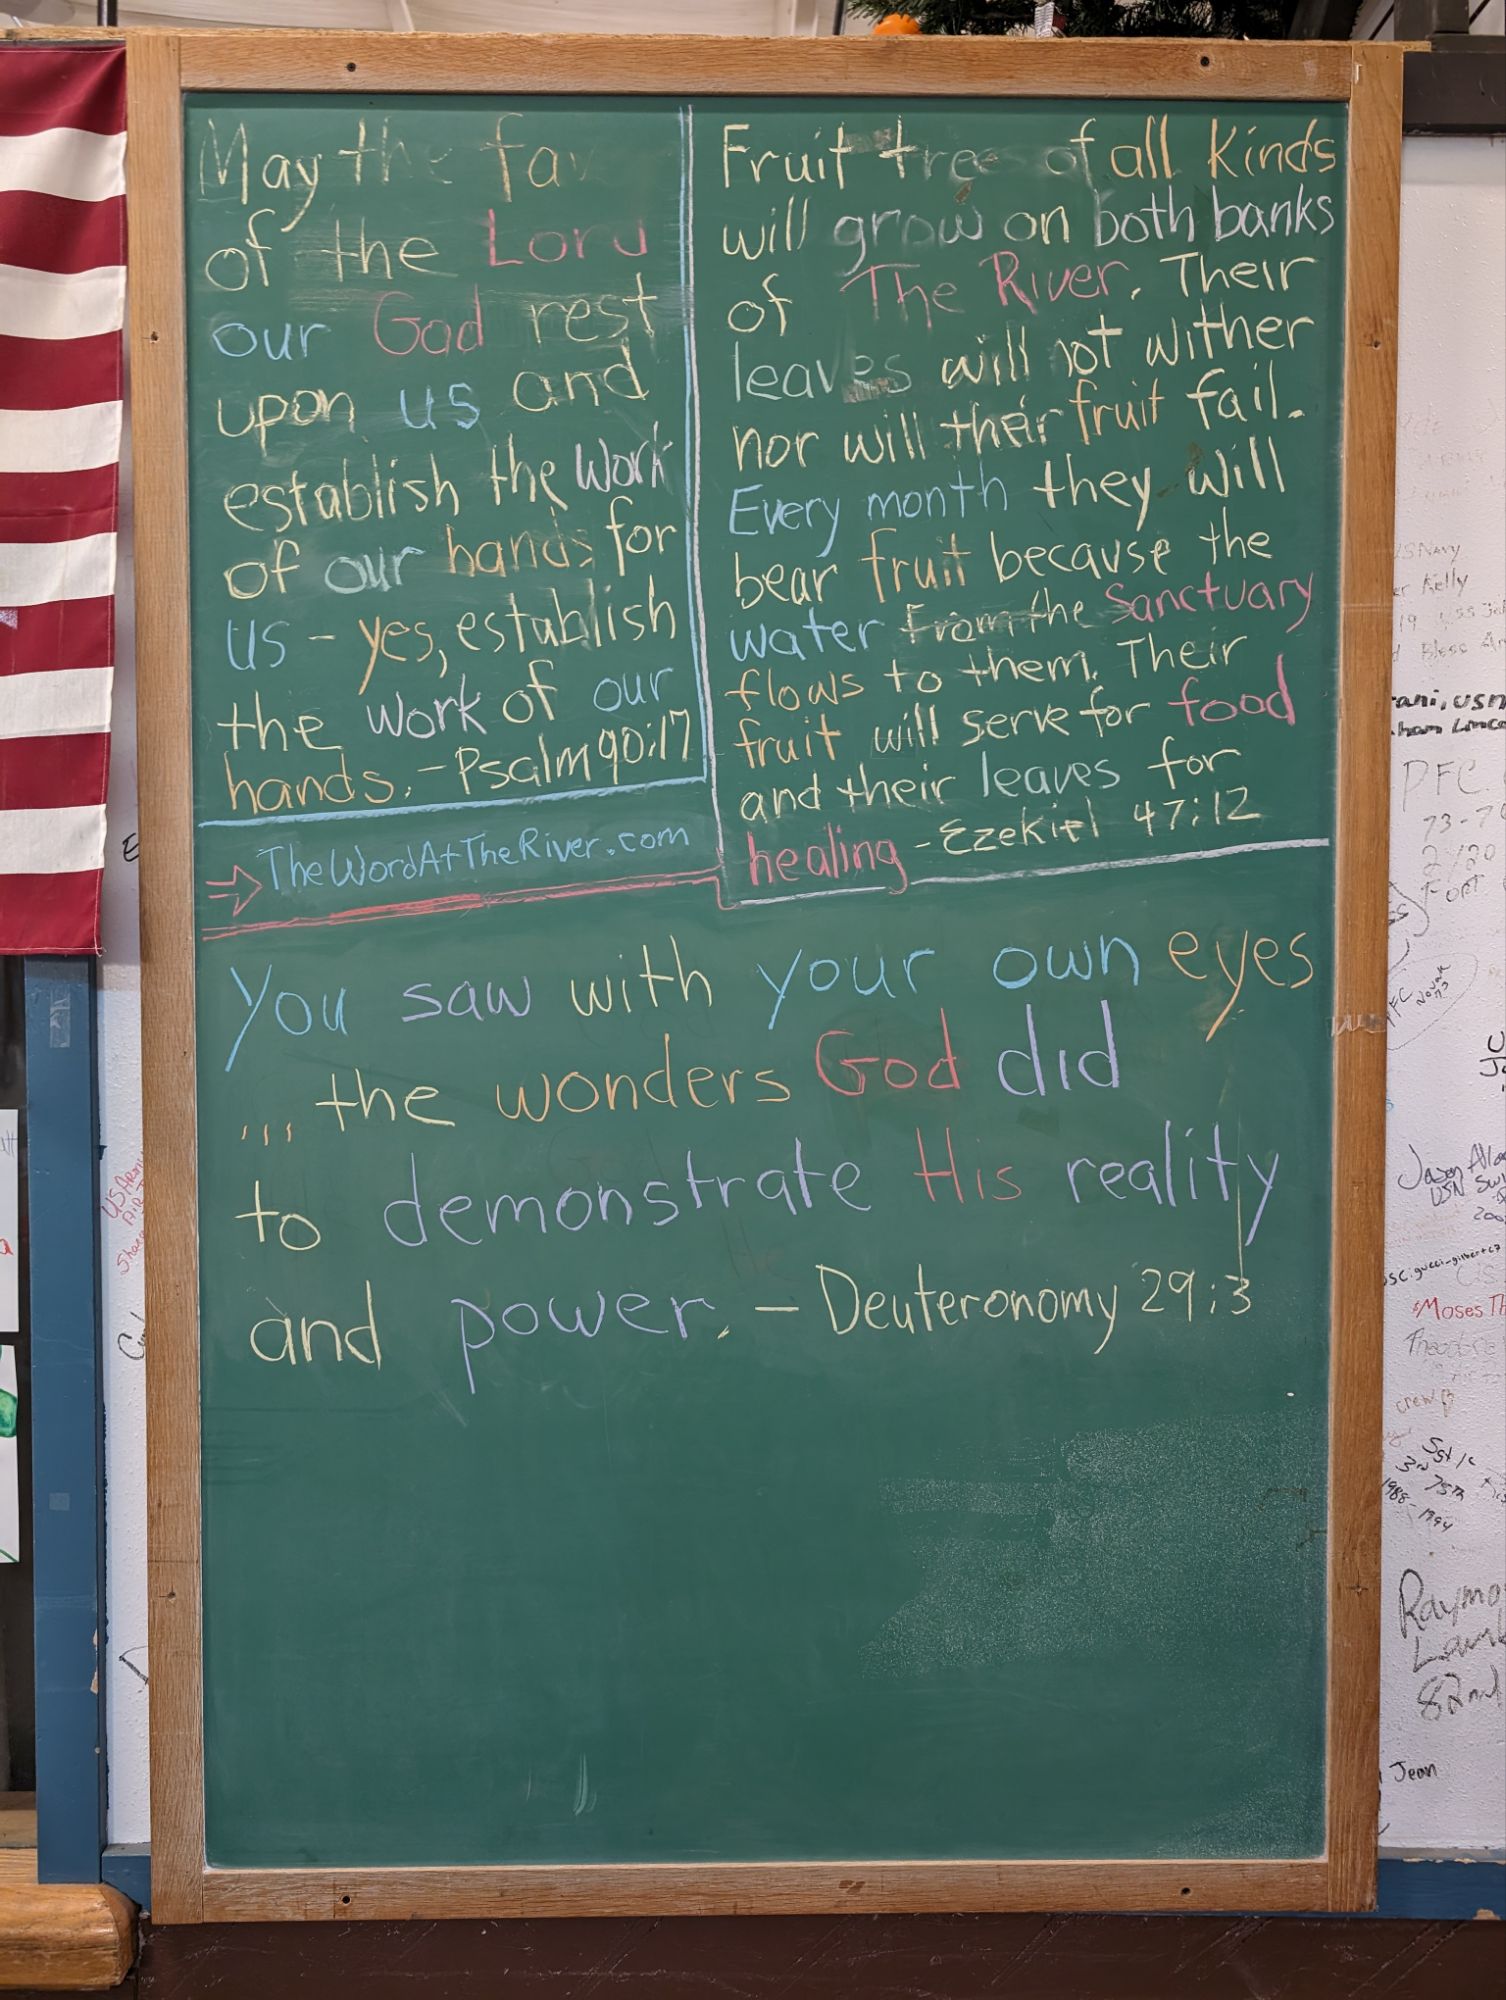 May the fav
of the Lord
our God rest
upon us and
establish the work
of our hands for
us - yes, establish
the work of our
hands. - Psalm 90:17
TheWordAtTheRiver.com
Fruit trees of all Kinds
will grow on both banks
of The River. Their
leaves will not wither
nor will their fruit fail.
Every month they will
bear fruit because the
water from the Sanctuary
flows to them. Their
fruit will serve for food
and their leaves for
healing - Ezekiel 47:12
You saw with your own eyes
... the wonders God did
to demonstrate His reality
and power. - Deuteronomy 29:3
US Navy
Kelly
PFC
73-74
PFC
Jason
USN
Moses
crew
1988-1994
Raymo
82nd
Jean